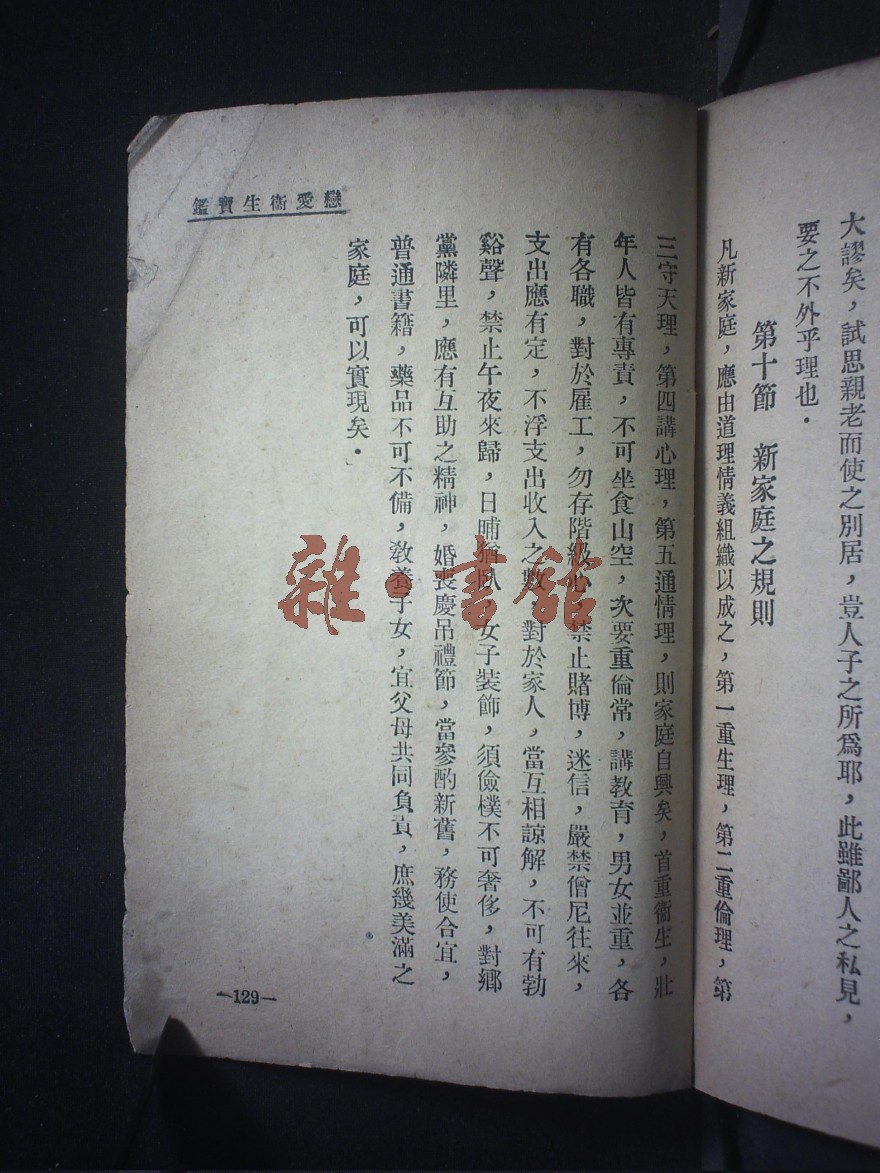 大謬矣，試思親老而使之別居，豈人子之所爲耶，此雖鄙人之私見，
要之不外乎理也．
第十節　新家庭之規則
凡新家庭，應由道理情義組織以成之，第一重生理，第二重倫理，第
三守天理，第四講心理，第五通情理，則家庭自興矣，首重衞生，壯
年人皆有專責，不可坐食山空，次要重倫常，講教育，男女並重，各
有各職，對於雇工，勿存階級心，禁止賭博，迷信，嚴禁僧尼往來，
支出應有定，不浮支出收入之數，對於家人，當互相諒解，不可有勃
谿聲，禁止午夜來歸，日晡猶臥，女子裝飾，須儉樸不可奢侈，對鄉
黨隣里，應有互助之精神，婚喪慶吊禮節，當參酌新舊，務使合宜，
普通書籍，藥品不可不備，敎養子女，宜父母共同負責，庶幾美滿之
家庭，可以實現矣．
戀愛衞生寶鑑
—129—
雜·書館